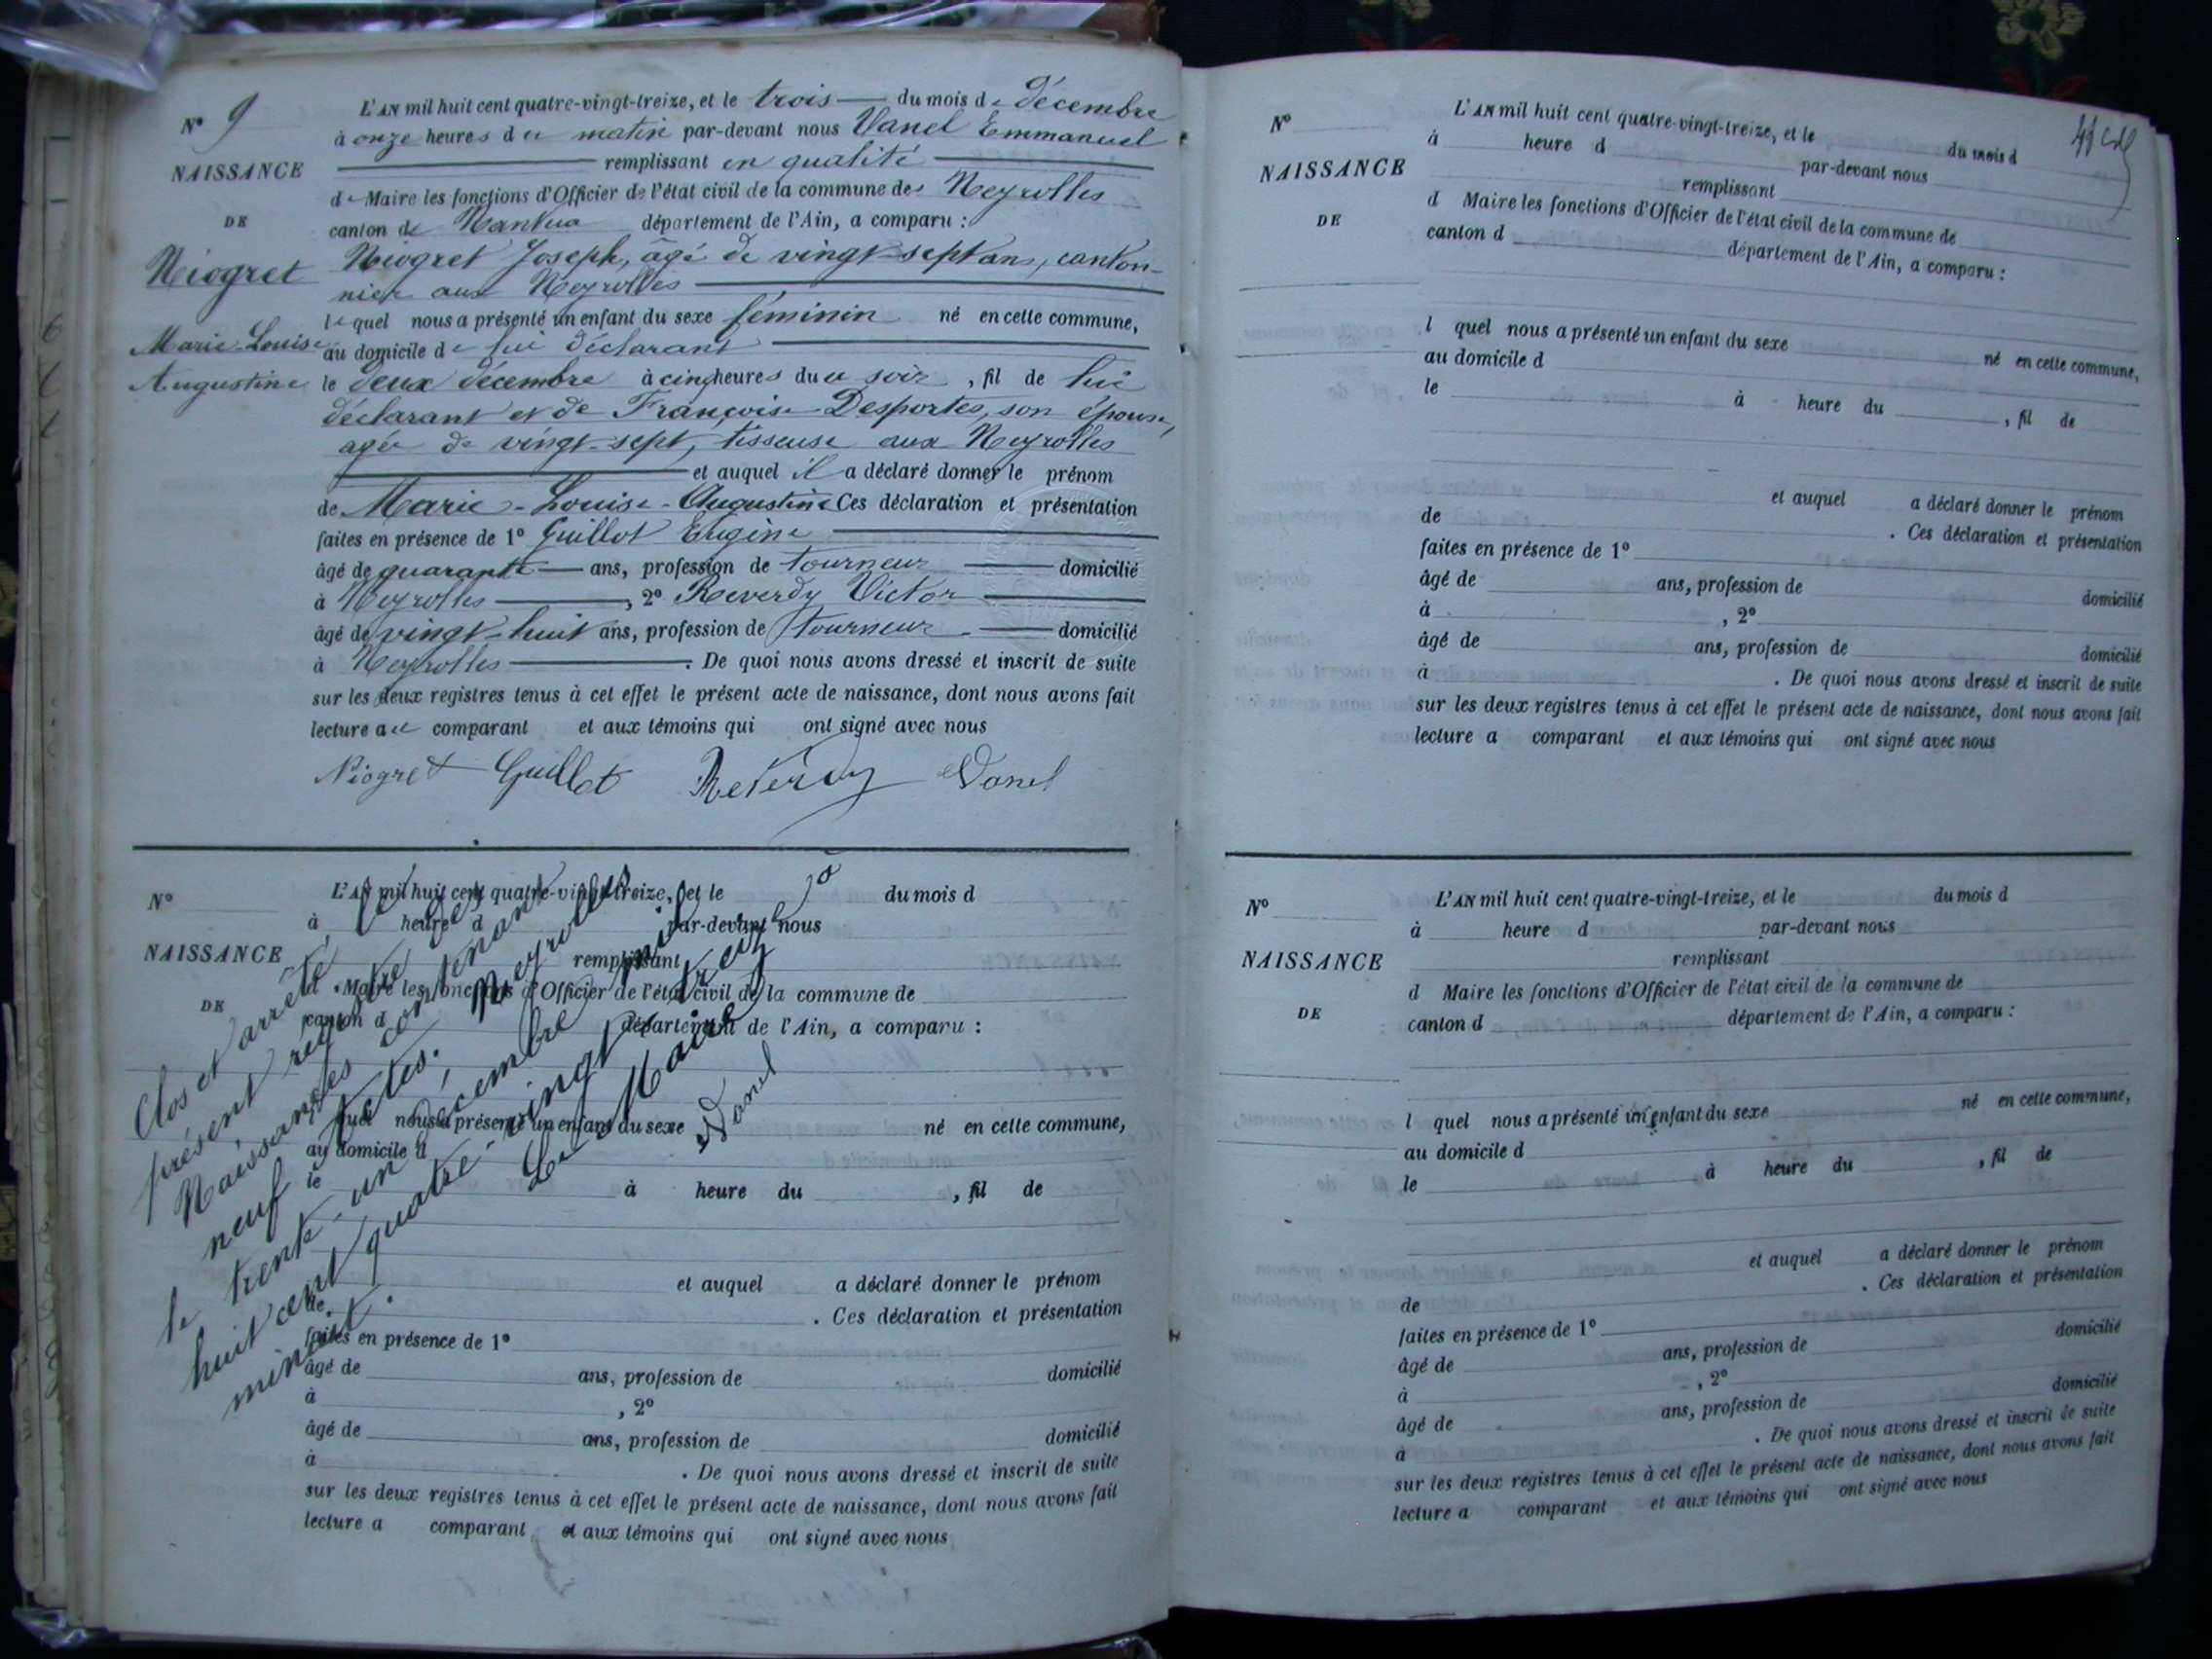 N° 9
NAISSANCE
DE
Niogret
Marie-Louise
Augustine
L'AN mil huit cent quatre-vingt-treize, et le trois du mois de décembre
à onze heures du matin par-devant nous Vanel Emmanuel
remplissant en qualité
de Maire les fonctions d'Officier de l'état civil de la commune des Neyrolles
canton de Nantua département de l'Ain, a comparu :
Niogret Joseph, âgé de vingt-sept ans, canton-
nier aux Neyrolles
lequel nous a présenté un enfant du sexe féminin né en cette commune,
au domicile de lui déclarant
le deux décembre à cinq heures du soir, fil de lui
déclarant et de Françoise Desportes, son épouse,
agée de vingt-sept, tisseuse aux Neyrolles
et auquel il a déclaré donner le prénom
de Marie-Louise-Augustine Ces déclaration et présentation
faites en présence de 1° Guillot Eugène
âgé de quarante ans, profession de tourneur domicilié
à Neyrolles, 2° Reverdy Victor
âgé de vingt-huit ans, profession de tourneur domicilié
à Neyrolles. De quoi nous avons dressé et inscrit de suite
sur les deux registres tenus à cet effet le présent acte de naissance, dont nous avons fait
lecture au comparant et aux témoins qui ont signé avec nous
Niogret Guillot Reverdy Vanel
N°
NAISSANCE
DE
L'AN mil huit cent quatre-vingt-treize, et le du mois d
à heure d par-devant nous
remplissant
d Maire les fonctions d'Officier de l'état civil de la commune de
canton d département de l'Ain, a comparu :
l quel nous a présenté un enfant du sexe né en cette commune,
au domicile d
le à heure du , fil de
et auquel a déclaré donner le prénom
de . Ces déclaration et présentation
faites en présence de 1°
âgé de ans, profession de domicilié
à , 2°
âgé de ans, profession de domicilié
à . De quoi nous avons dressé et inscrit de suite
sur les deux registres tenus à cet effet le présent acte de naissance, dont nous avons fait
lecture a comparant et aux témoins qui ont signé avec nous
Clos et arrêté le
présent registre des
Naissances contenant
neuf actes. Neyrolles
le trente-un décembre mil
huit cent quatre-vingt treize à
minuit.
Le Maire
Vanel
N°
NAISSANCE
DE
L'AN mil huit cent quatre-vingt-treize, et le du mois d
à heure d par-devant nous
remplissant
d Maire les fonctions d'Officier de l'état civil de la commune de
canton d département de l'Ain, a comparu :
l quel nous a présenté un enfant du sexe né en cette commune,
au domicile d
le à heure du , fil de
et auquel a déclaré donner le prénom
de . Ces déclaration et présentation
faites en présence de 1°
âgé de ans, profession de domicilié
à , 2°
âgé de ans, profession de domicilié
à . De quoi nous avons dressé et inscrit de suite
sur les deux registres tenus à cet effet le présent acte de naissance, dont nous avons fait
lecture a comparant et aux témoins qui ont signé avec nous
N°
NAISSANCE
DE
L'AN mil huit cent quatre-vingt-treize, et le du mois d
à heure d par-devant nous
remplissant
d Maire les fonctions d'Officier de l'état civil de la commune de
canton d département de l'Ain, a comparu :
l quel nous a présenté un enfant du sexe né en cette commune,
au domicile d
le à heure du , fil de
et auquel a déclaré donner le prénom
de . Ces déclaration et présentation
faites en présence de 1°
âgé de ans, profession de domicilié
à , 2°
âgé de ans, profession de domicilié
à . De quoi nous avons dressé et inscrit de suite
sur les deux registres tenus à cet effet le présent acte de naissance, dont nous avons fait
lecture a comparant et aux témoins qui ont signé avec nous